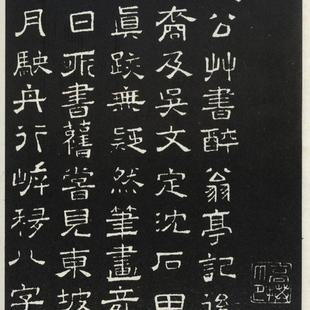 公艸書醉翁亭記後
裔及吳文定沈石田
眞跡無疑然筆畫
日所書舊嘗見東坡
月駛舟行岸移八字